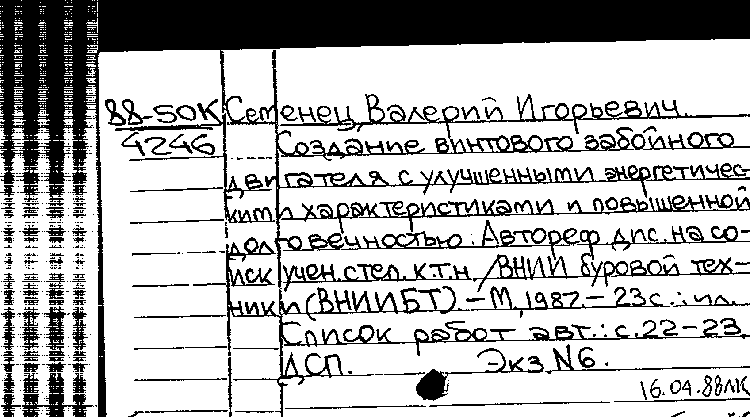 88-50К Семенец, Валерий Игорьевич.
4246 Создание винтового забойного
двигателя с улучшенными энергетичес-
кими характеристиками и повышенной
долговечностью: Автореф. дис. на со-
иск. учен. степ. к.т.н. /ВНИИ буровой тех-
ники (ВНИИБТ). – М., 1987. – 23 с.: ил.
Список работ авт.: с. 22–23.
ДСП. Экз. N6.
16.04.88